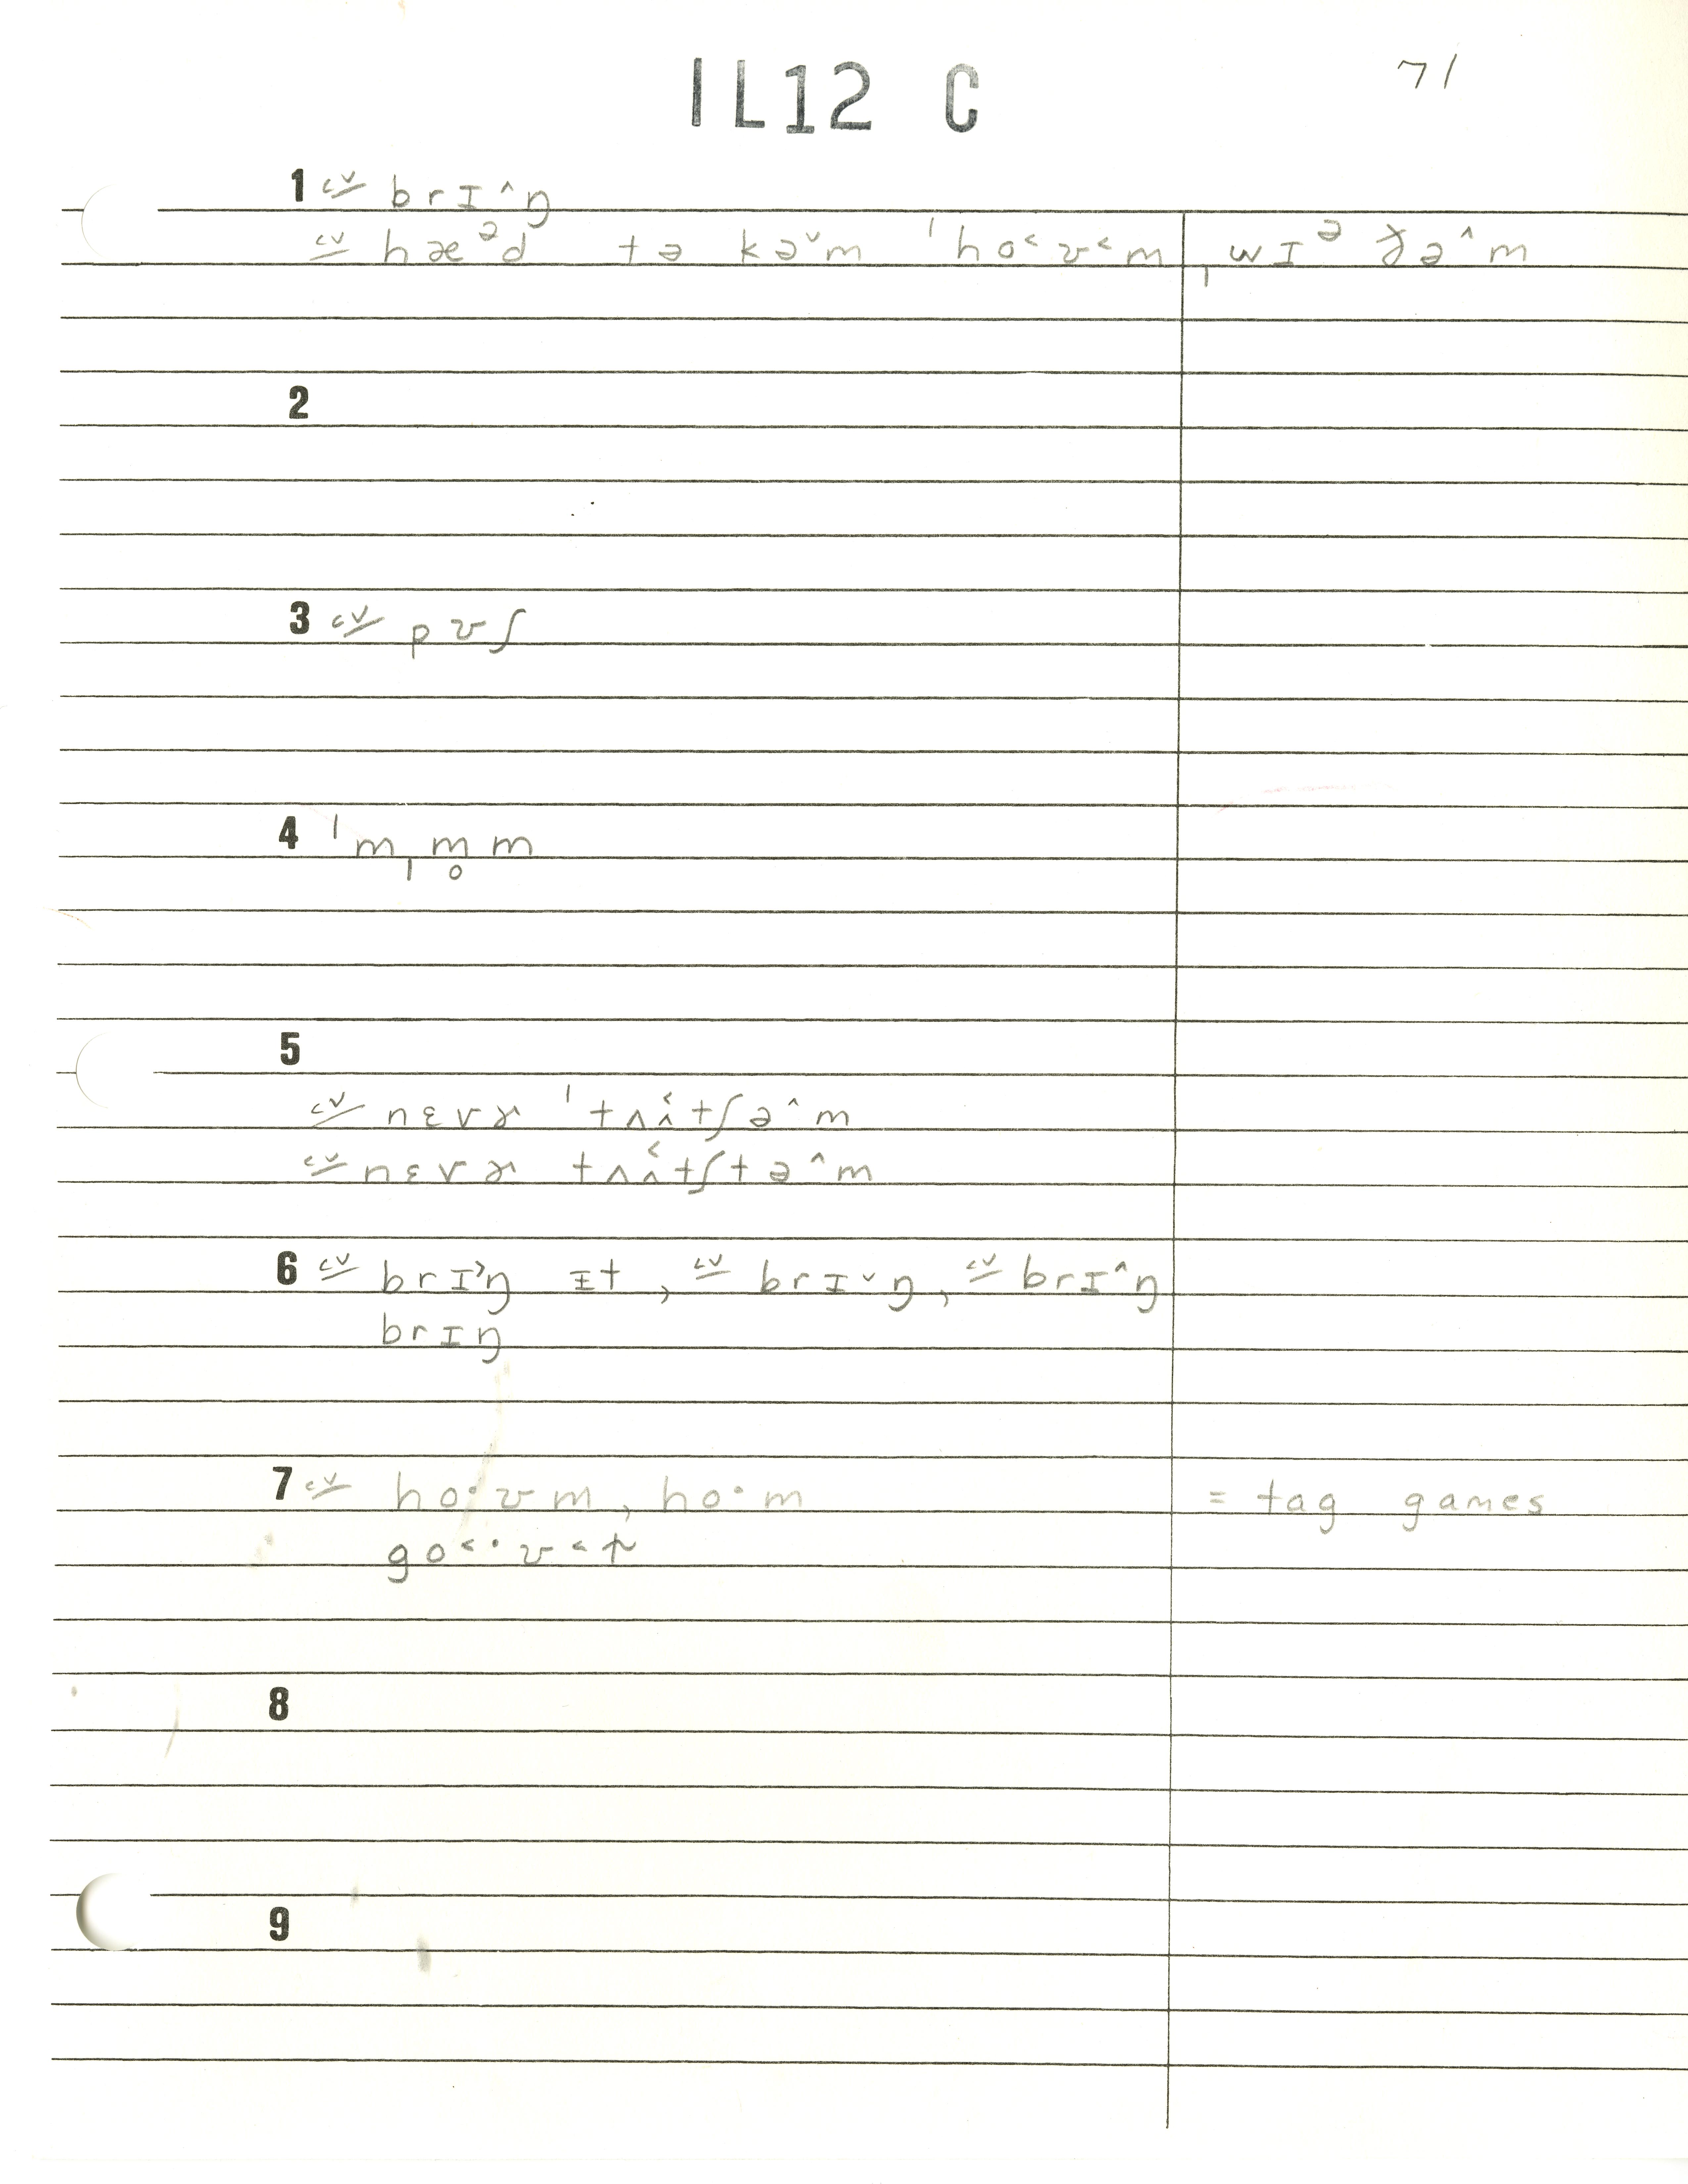 IL12 C 71
1 cv brɪ^ŋ
cv hæᵊd tə kəˇm ˈho˂ʊ˂m ˌwɪᵊ ð̯ə^m
2
3 cv pʊʃ
4 ˈmˌm̥m
5
cv nɛvɚ ˈtʌi˂tʃə^m
cv nɛvɚ tʌi˂tʃtə^m
6 cv brɪ˃ŋ ɪt, cv brɪˇŋ, cv brɪ^ŋ
brɪŋ
7 cv ho·ʊm, ho·m = tag games
go˂·ʊ˂
8
9